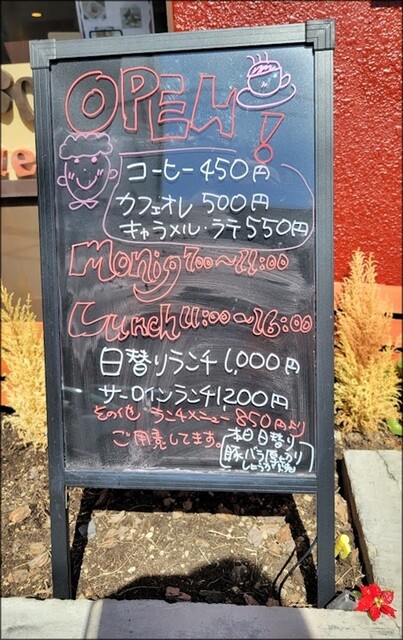 OPEN!
コーヒー 450円
カフェオレ 500円
キャラメル・ラテ 550円
Monig 7:00〜11:00
Lunch 11:00〜16:00
日替りランチ 1,000円
サーロインランチ 1,200円
その他 ランチメニュー 850円より
ご用意してます。
本日日替り
豚バラ厚切り
しょうが焼